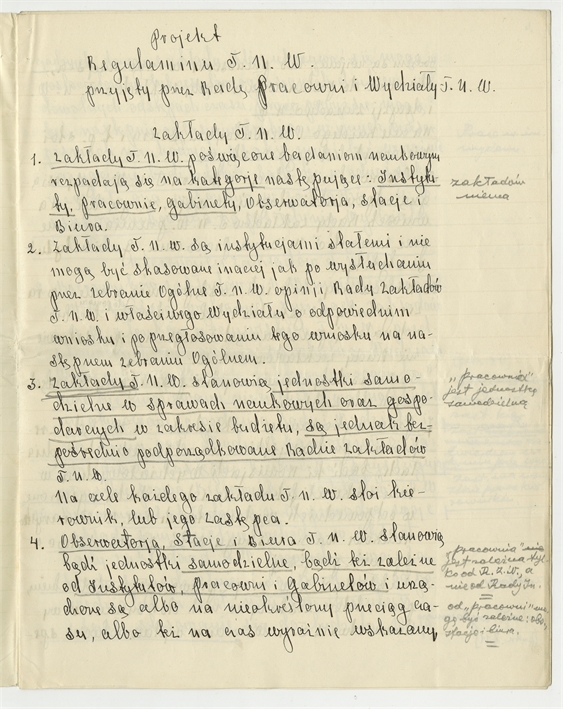 Projekt
Regulaminu T. N. W
przyjęty przez Radę Pracowni i Wydziały T. N. W.
Zakłady T. N. W.
1. Zakłady T. N. W. poświęcone badaniom naukowym
rozpadają się na kategorje następujące: Instytu-
ty, pracownie, gabinety, Obserwatorja, stacje i
Biura.
zakładów
niema
2. Zakłady T. N. W. są instytucjami stałemi i nie
mogą być skasowane inaczej jak po wysłuchaniu
przez zebranie Ogólne T. N. W. opinji Rady Zakładów
T. N. W. i właściwego Wydziału o odpowiednim
wniosku i po przegłosowaniu tego wniosku na na-
stępnem zebraniu Ogólnem.
3. Zakłady T. N. W. stanowią jednostki samo-
dzielne w sprawach naukowych oraz gospo-
darczych w zakresie budżetu, są jednak bez-
pośrednio podporządkowane Radzie Zakładów
T. N. W.
„pracownia"
jest jednostką
samodzielną
Na czele każdego zakładu T. N. W. stoi kie-
rownik, lub jego Zastępca.
4. Obserwatorja, Stacje i Biura T. N. W. stanowią
bądź jednostki samodzielne, bądź też zależne
od Instytutów, pracowni i Gabinetów i urzą-
dzone są albo na nieokreślony przeciąg cza-
su, albo też na czas wyraźnie wskazany,
„pracownia" nie
jest zależna tyl-
ko od R. Z. W., a
nie od Rady In.
od „pracowni" mo-
gą być zależne: obs.,
stacje i biura.